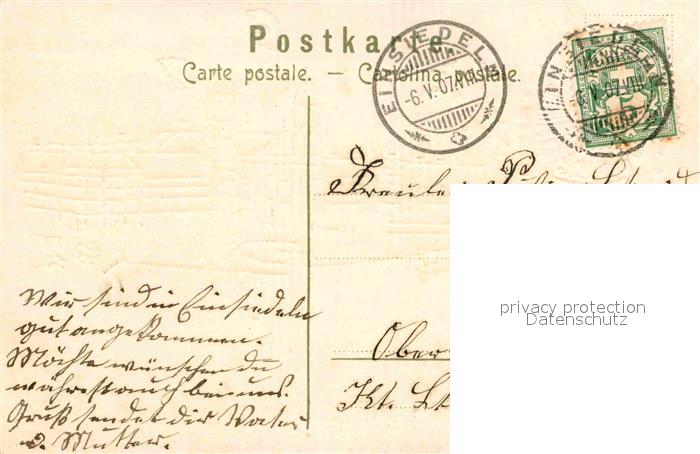 Postkarte
Carte postale. — Cartolina postale.
EINSIEDELN
-6.V.07.VIII
EINSIEDELN
-6.V.07.VIII
Fräulein
privacy protection
Datenschutz
Ober
Kt. St.
Wir sind in Einsiedeln
gut angekommen.
Möchte wünschen du
wärest auch bei uns.
Gruß sendet dir Vater
u. Mutter.